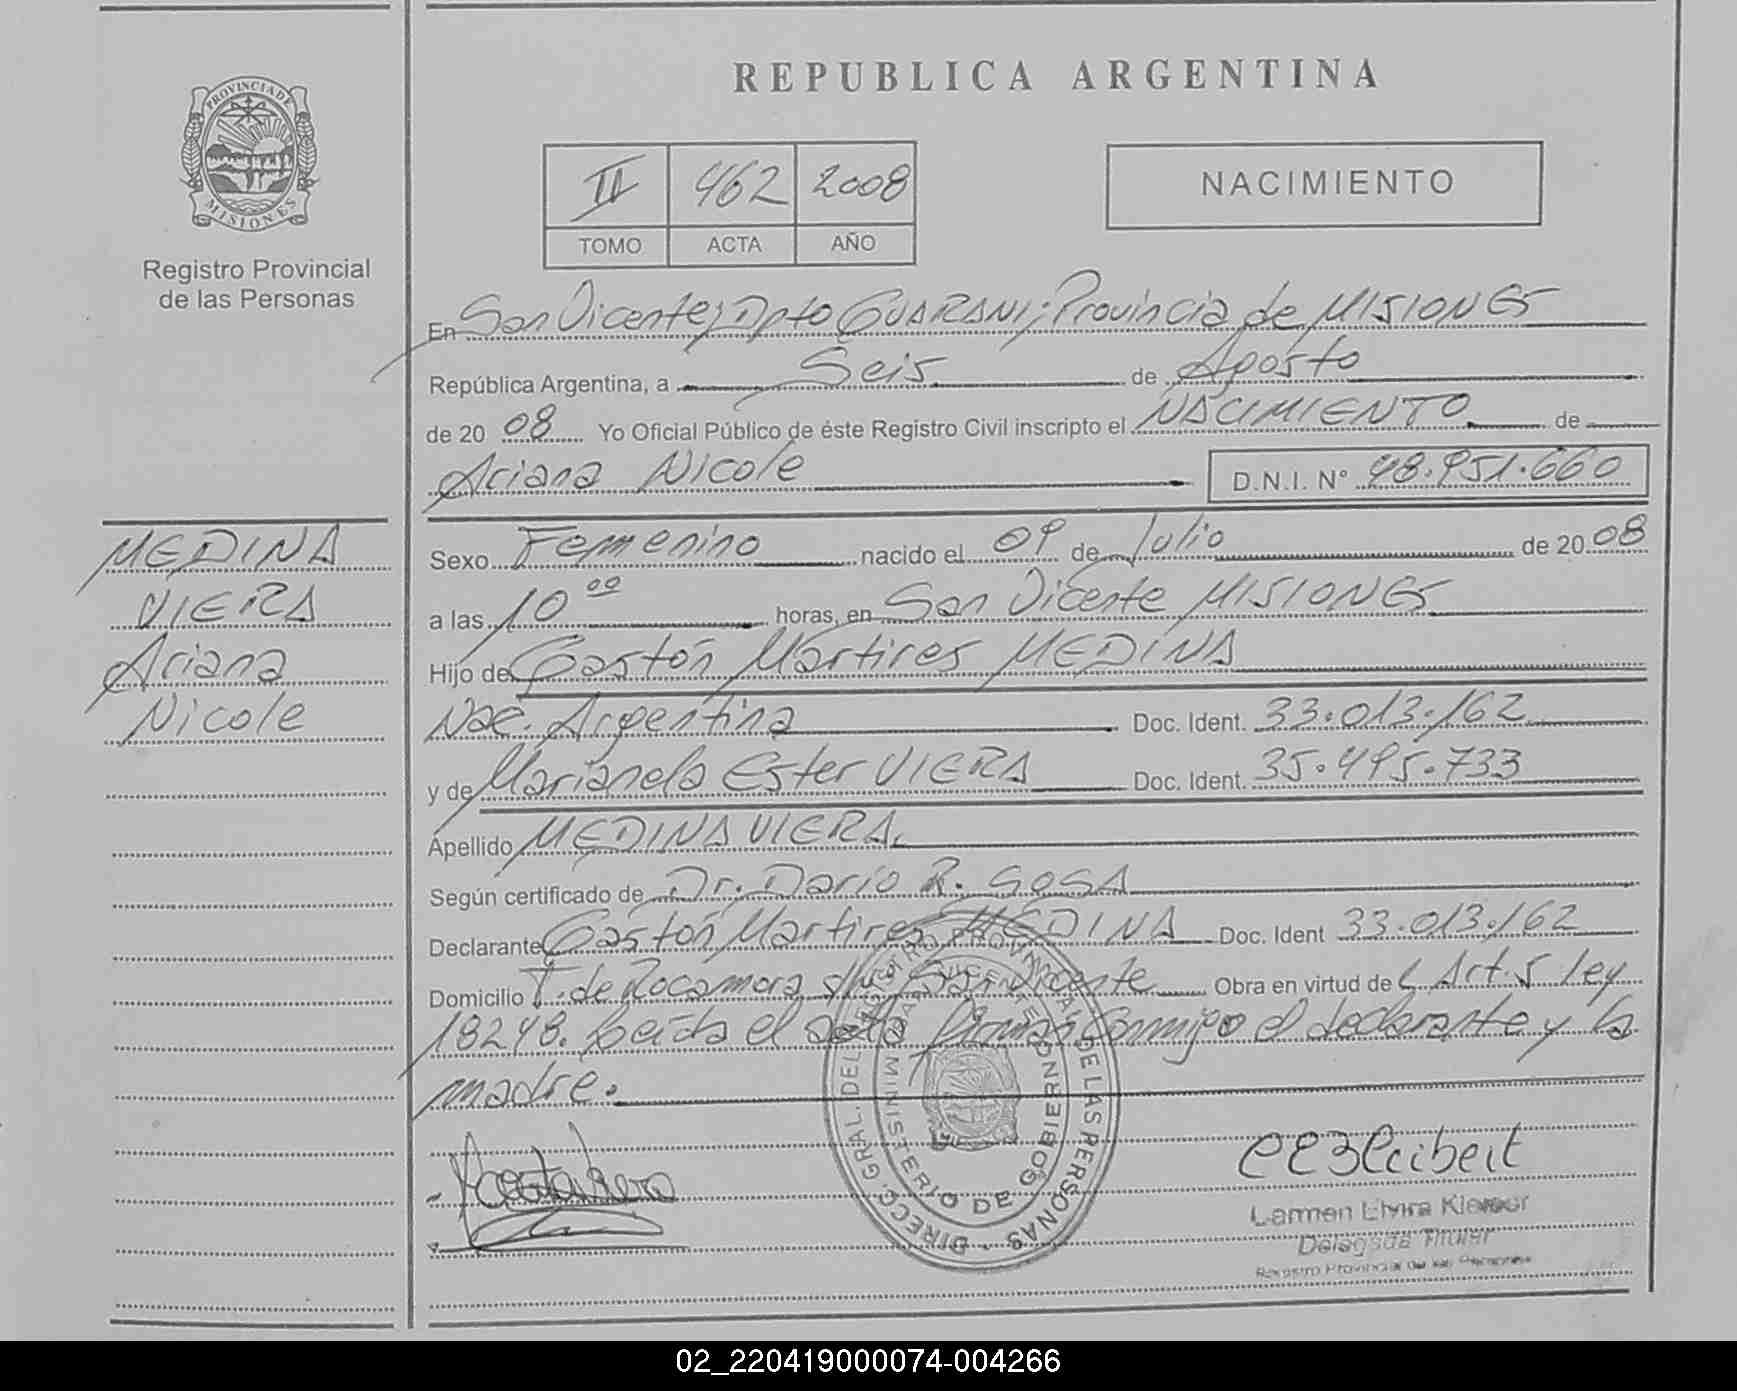 PROVINCIA DE
MISIONES
Registro Provincial
de las Personas
REPUBLICA ARGENTINA
II 462 2008
TOMO ACTA AÑO
NACIMIENTO
En San Vicente; Dpto GUARANI; Provincia de MISIONES
República Argentina, a Seis de Agosto
de 20 08 Yo Oficial Público de éste Registro Civil inscripto el NACIMIENTO de
Ariana Nicole D.N.I. N° 48.951.660
MEDINA
VIERA
Ariana
Nicole
Sexo Femenino nacido el 09 de Julio de 20 08
a las 10 00 horas, en San Vicente MISIONES
Hijo de Gastón Martires MEDINA
Nac. Argentina Doc. Ident. 33.013.162
y de Marianela Ester VIERA Doc. Ident. 35.495.733
Apellido MEDINA VIERA.
Según certificado de Dr. Dario R. SOSA
Declarante Gastón Martires MEDINA Doc. Ident 33.013.162
Domicilio T. de Rocamora s/n San Vicente Obra en virtud de L Art. 5 Ley
18248. Leída el acta firman conmigo el declarante y la
madre.
DIRECC. GRAL. DEL REGISTRO PROVINCIAL DE LAS PERSONAS
MINISTERIO DE GOBIERNO
SAN VICENTE
Carmen Elvira
Delegada Titular
Registro Provincial de las Personas
02_220419000074-004266